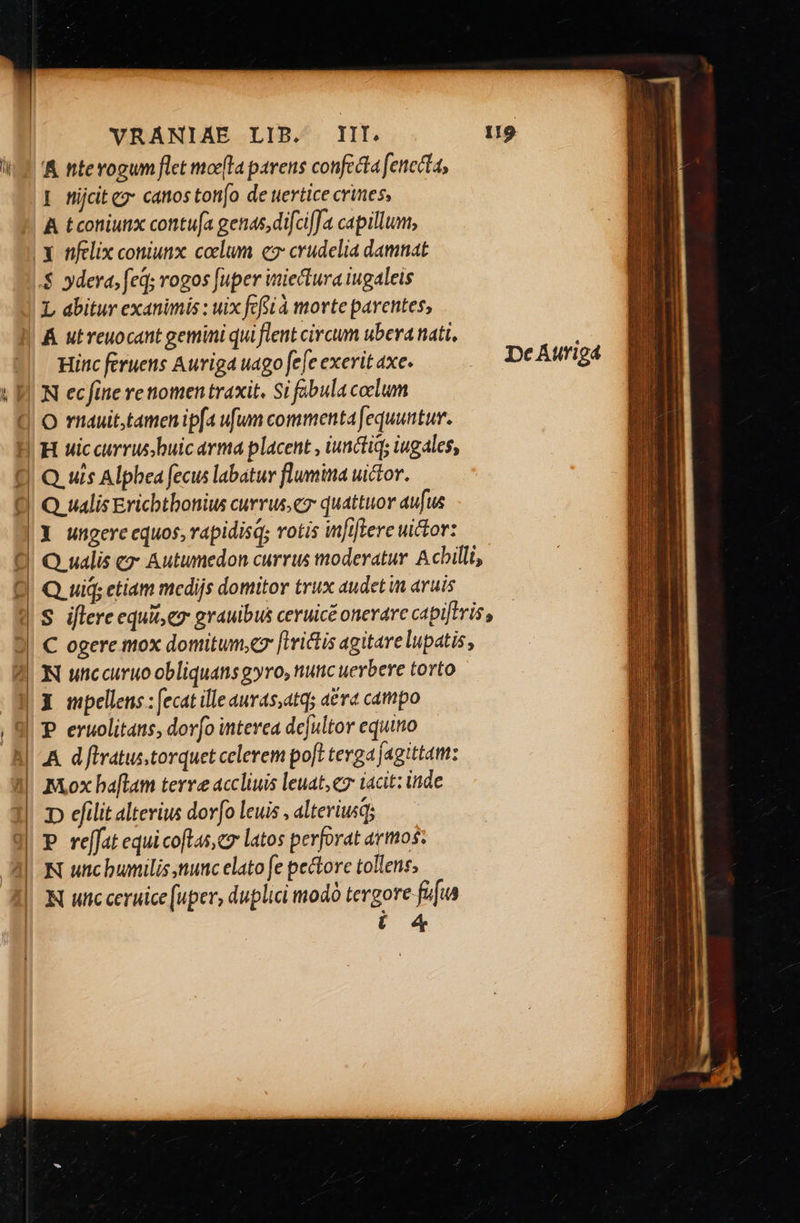 VRANIAE LIB. III. 119
A nte rogum flet mœſta parens confecta ſenecta,
I nijcit & canos tonſo de uertice crines,
A t coniunx contuſa genas, diſciſſa capillum,
I nfelix coniunx cœlum & crudelia damnat
S ydera, ſeq́; rogos ſuper iniectura iugaleis
L abitur exanimis: uix feßi à morte parentes,
A ut reuocant gemini qui flent circum ubera nati.
Hinc feruens Auriga uago ſeſe exerit axe.
De Auriga
N ec ſine re nomen traxit. Si fabula cœlum
O rnauit, tamen ipſa uſum commenta ſequuntur.
H uic currus, huic arma placent, iunctiq́; iugales,
Q uis Alphea ſecus labatur flumina uictor.
Q ualis Erichthonius currus, & quattuor auſus
I ungere equos, rapidisq́; rotis inſiſtere uictor:
Q ualis & Autumedon currus moderatur Achilli,
Q uiq́; etiam medijs domitor trux audet in aruis
S iſtere equũ, & grauibus ceruicẽ onerare capiſtris,
C ogere mox domitum, & ſtrictis agitare lupatis,
N unc curuo obliquans gyro, nunc uerbere torto
I mpellens: ſecat ille auras, atq; aëra campo
P eruolitans, dorſo interea deſultor equino
A dſtratus, torquet celerem poſt terga ſagittam:
Mox haſtam terræ accliuis leuat, & iacit: inde
D eſilit alterius dorſo leuis, alteriusq́;
P reſſat equi coſtas, & latos perforat armos:
N unc humilis, nunc elato ſe pectore tollens,
N unc ceruice ſuper, duplici modò tergore fuſus
i 4